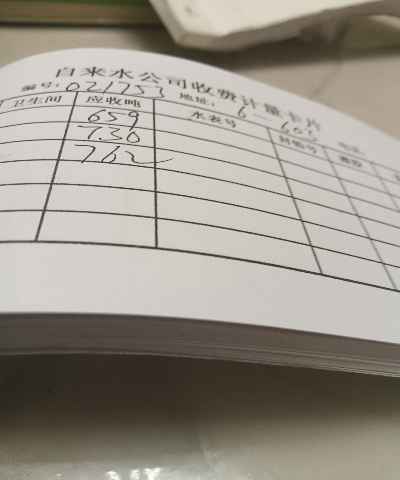 自来水公司收费计量卡片
编号: 021753 地址: 6-601
卫生间 应收吨 水表号 封铅号
659
730
762